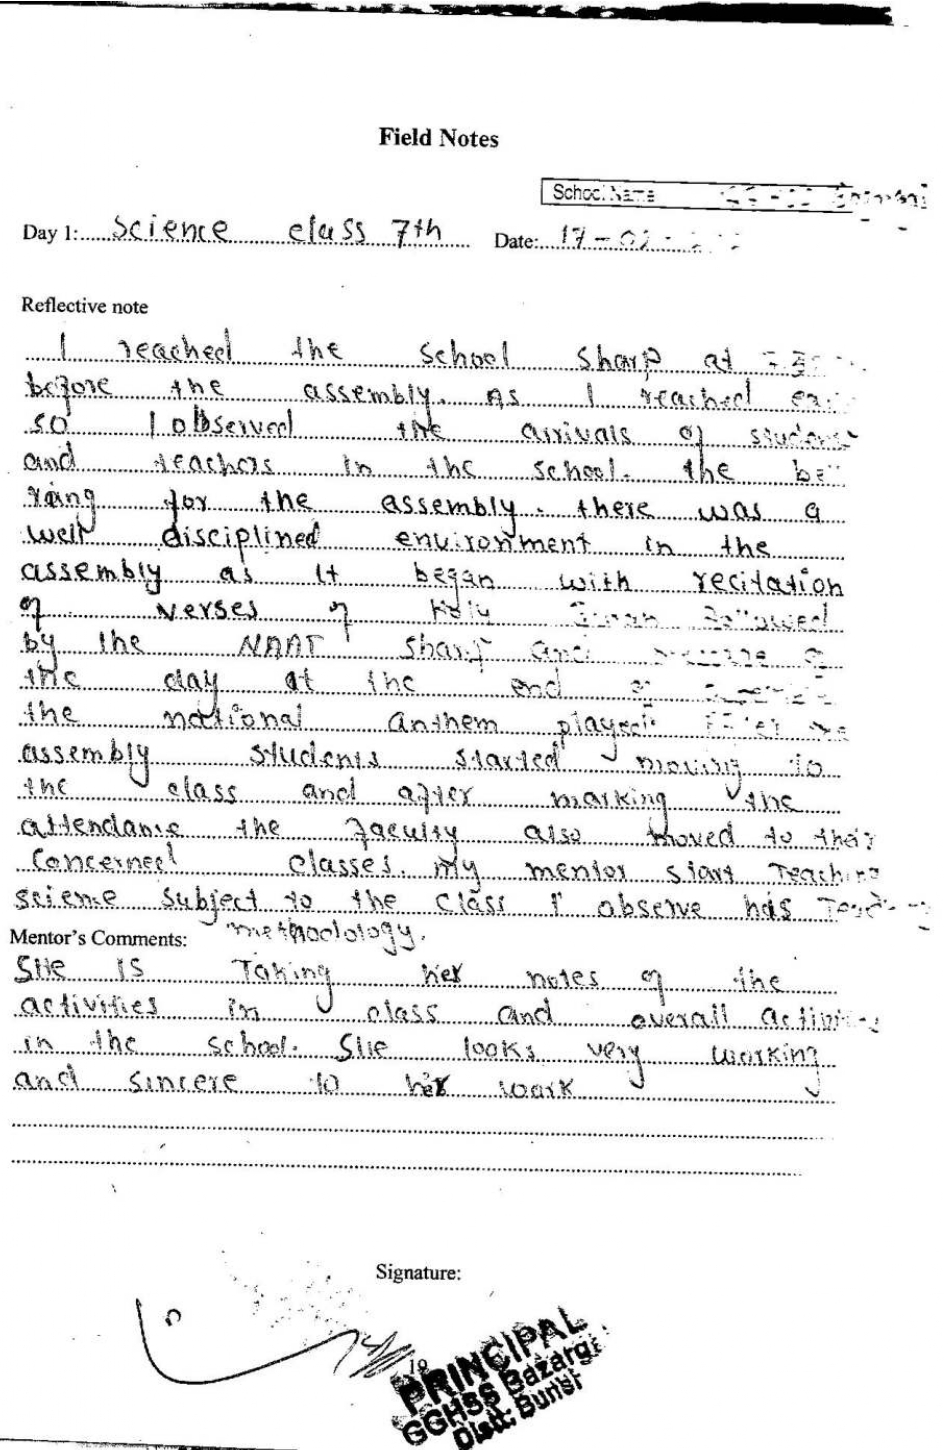 Field Notes
School Name
Day 1: Science class 7th Date: 17-02-
Reflective note
I reached the School Sharp at
before the assembly. As I reached
so I observed the arrivals of
and teachers in the school. the
rang for the assembly. there was a
well disciplined environment in the
assembly as it began with recitation
of verses of Holy Followed
by the NAAT Sharif and
the day at the end
the national anthem played
assembly students started moving to
the class and after marking the
attendance the faculty also moved to their
Concerned classes. my mentor start Teaching
science subject to the class I observe has
methodology.
Mentor's Comments:
She is Taking her notes of the
activities in class and overall
in the school. She looks very working
and sincere to her work
Signature:
19
PRINCIPAL
GGHSS Bazargi
Distt: Buner